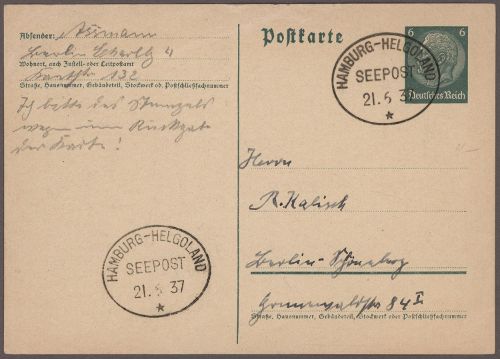 Absender: Assmann
Berlin Charltbg 4
Wohnort, auch Zustell- oder Leitpostamt
Kantstr 132
Straße, Hausnummer, Gebäudeteil, Stockwerk od. Postschließfachnummer
Ich bitte des Stempels
wegen um Rückgabe
der Karte!
HAMBURG-HELGOLAND
SEEPOST
21. 5 37
Postkarte
HAMBURG-HELGOLAND
SEEPOST
21. 5 37
6 6
Deutsches Reich
Herrn
R. Kalisch
Berlin-Schöneberg
Grunewaldstr 84 I
Straße, Hausnummer, Gebäudeteil, Stockwerk oder Postschließfachnummer